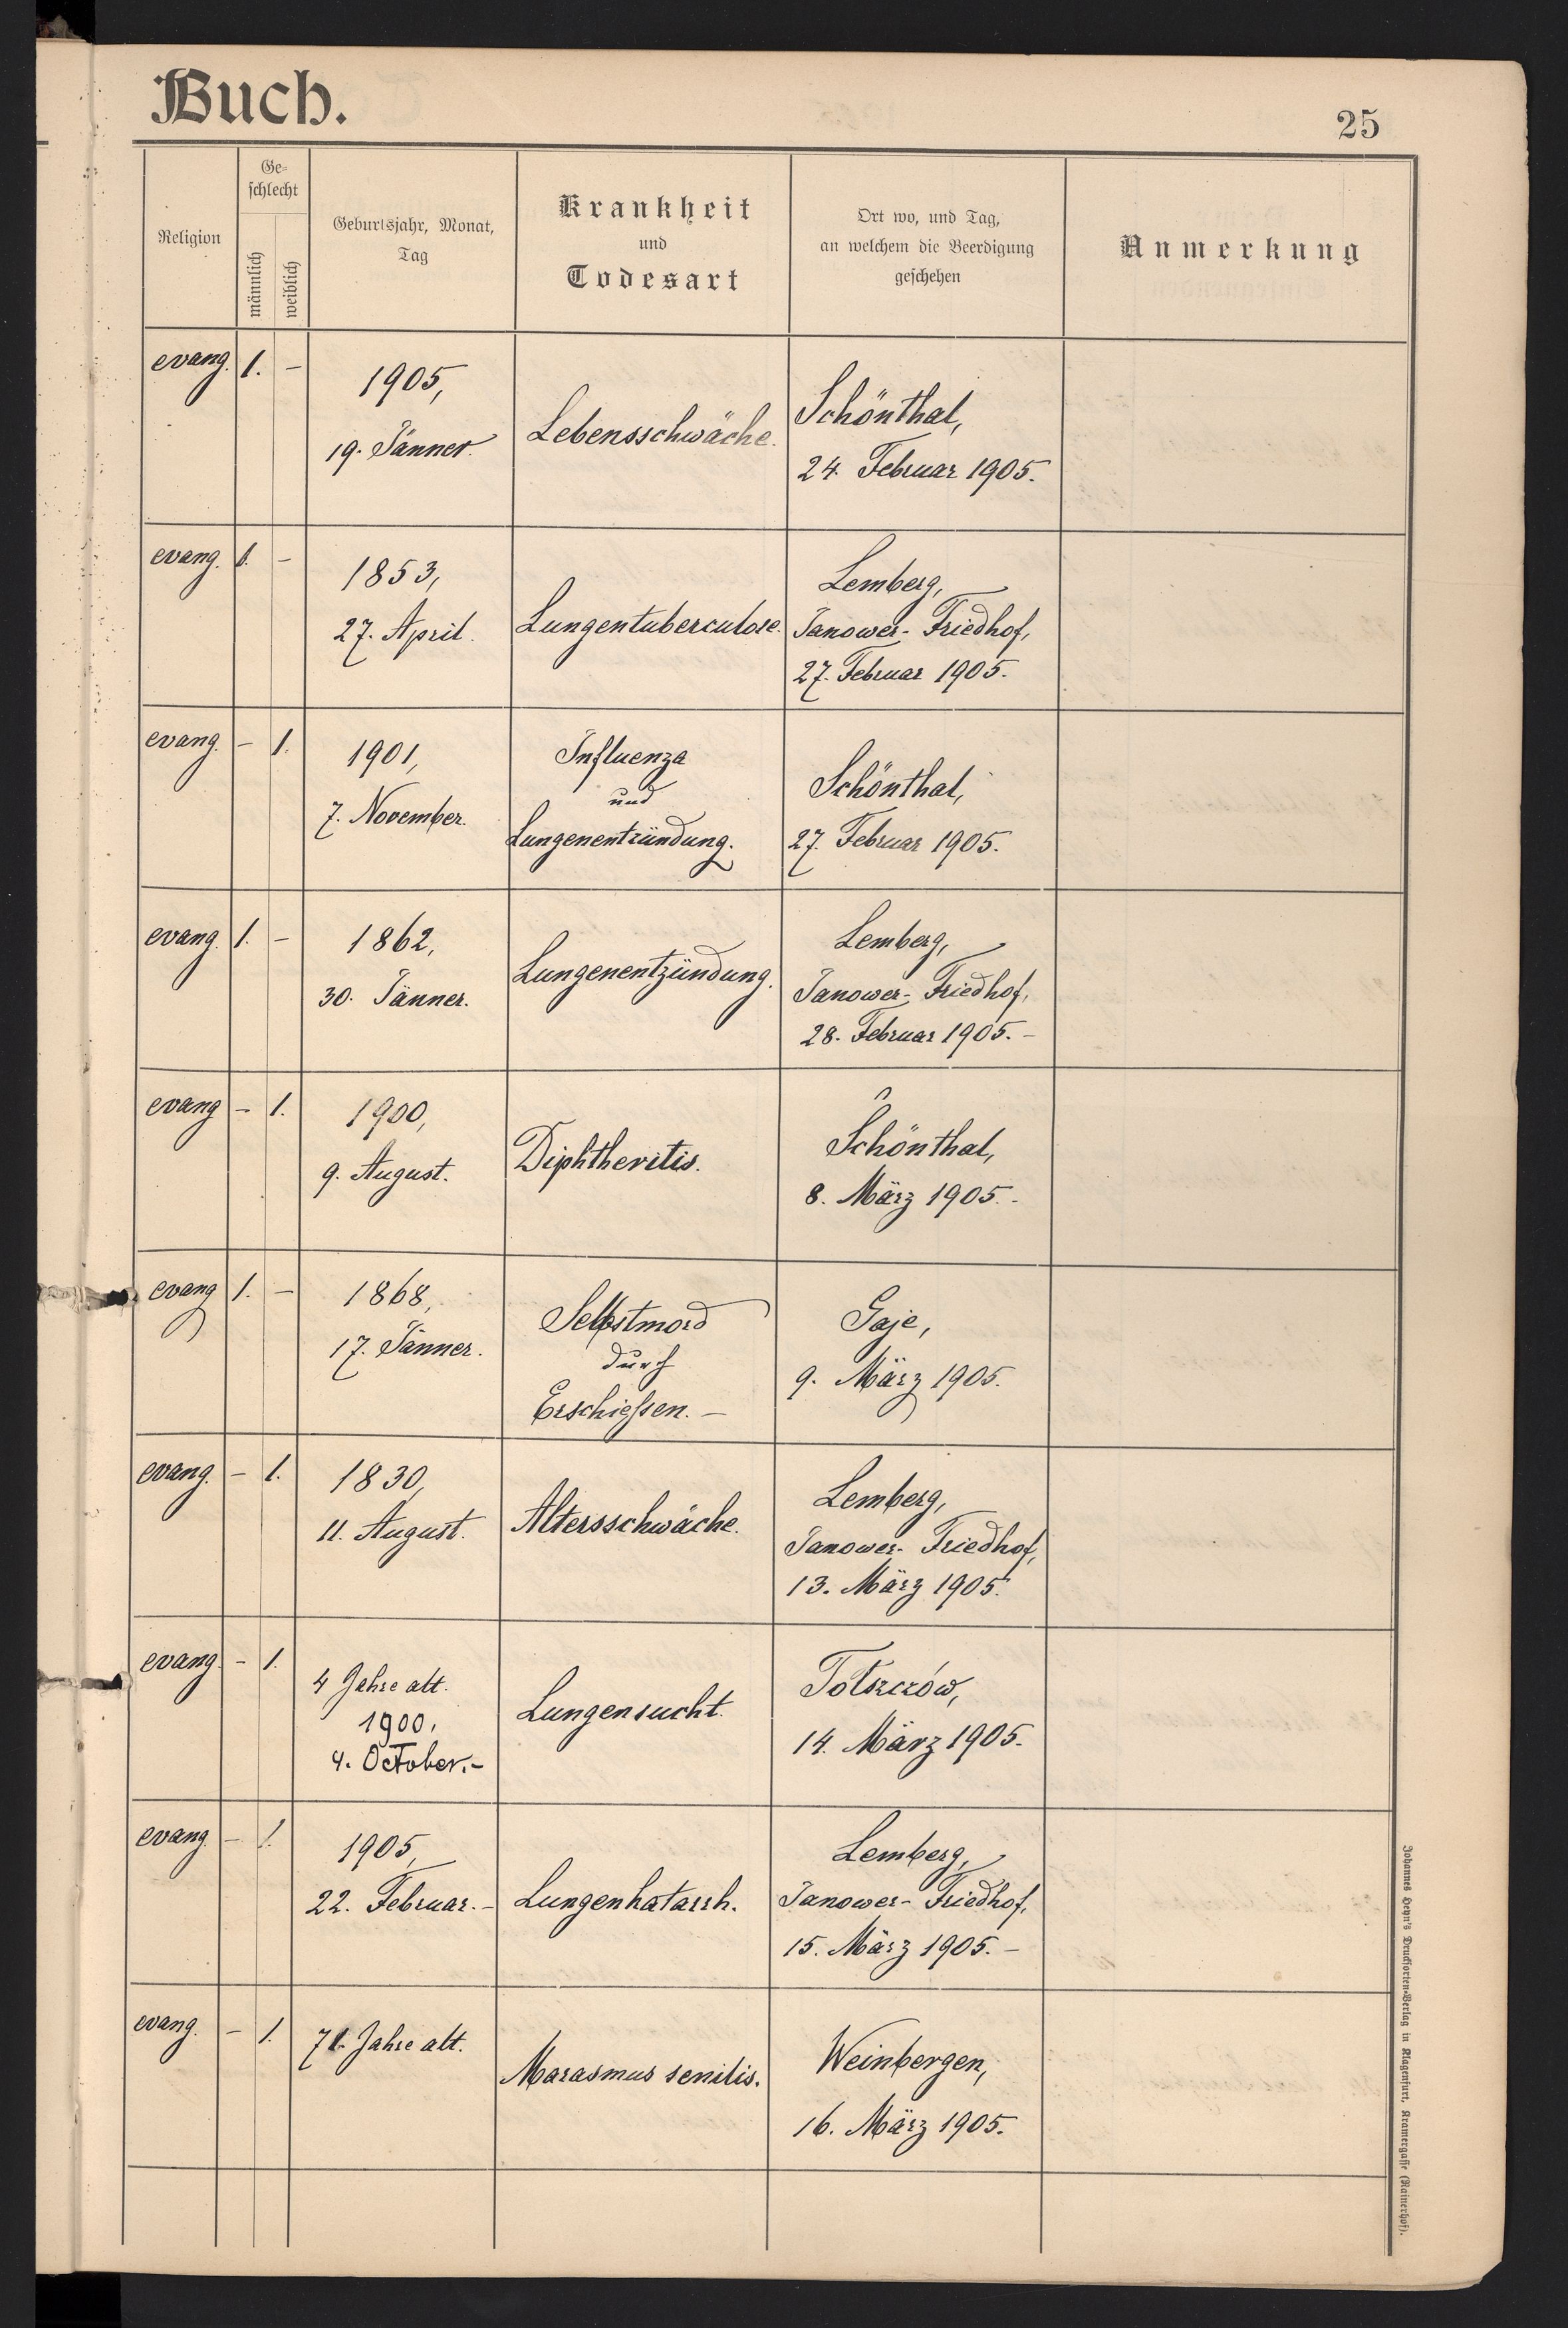 Buch.
25
Religion
Ge-
schlecht
männlich
weiblich
Geburtsjahr, Monat,
Tag
Krankheit
und
Todesart
Ort wo, und Tag,
an welchem die Beerdigung
geschehen
Anmerkung
evang. 1. –
1905,
19. Jänner.
Lebensschwäche.
Schönthal,
24. Februar 1905.
evang. 1. –
1853,
27. April.
Lungentuberculose.
Lemberg,
Janower-Friedhof,
27. Februar 1905.
evang. – 1.
1901,
7. November.
Influenza
und
Lungenentzündung.
Schönthal,
27. Februar 1905.
evang. 1. –
1862,
30. Jänner.
Lungenentzündung.
Lemberg,
Janower-Friedhof,
28. Februar 1905. –
evang – 1.
1900,
9. August.
Diphtheritis.
Schönthal,
8. März 1905. -
evang 1. –
1868,
17. Jänner.
Selbstmord
durch
Erschießen. –
Gaje,
9. März 1905.
evang. – 1.
1830,
11. August.
Altersschwäche.
Lemberg,
Janower-Friedhof,
13. März 1905.
evang. – 1.
4 Jahre alt.
1900,
4. October. -
Lungensucht.
14. März 1905.
evang. – 1.
1905,
22. Februar. -
Lungenkatarrh.
Lemberg,
Janower-Friedhof,
15. März 1905. –
evang. – 1.
71. Jahre alt.
Marasmus senilis.
Weinbergen,
16. März 1905.
Johannes Heyn's Drucksorten-Verlag in Klagenfurt, Kramergasse (Rainerhof).